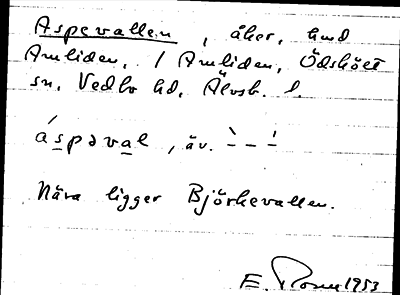 Aspevallen, åker, hmd
Amliden, / Amliden, Ödskölt
sn, Vedbo hd, Älvsb. l.
áspəval, äv. ` – – ´
Nära ligger Björkevallen.
E. 1953